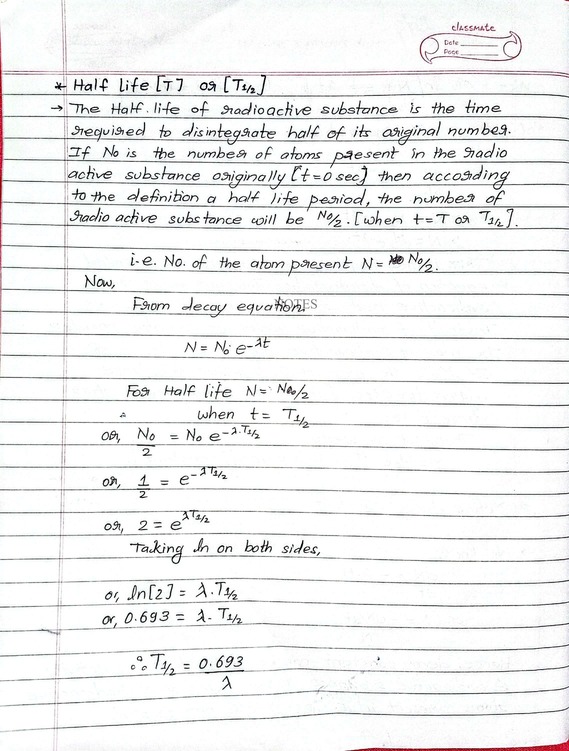 classmate
Date
Page
* Half life [T] or [T1/2]
→ The Half life of radioactive substance is the time
required to disintegrate half of its original number.
If No is the number of atoms present in the radio
active substance originally [t=0 sec] then according
to the definition a half life period, the number of
radio active substance will be No/2. [when t=T or T1/2].
i.e. No. of the atom present N = No/2.
Now,
From decay equation.
NOTES
N = No e-λt
For Half life N = No/2
when t = T1/2
or, No/2 = No e-λ.T1/2
or, 1/2 = e-λT1/2
or, 2 = eλT1/2
Taking ln on both sides,
or, ln[2] = λ.T1/2
or, 0.693 = λ. T1/2
∴ T1/2 = 0.693/λ